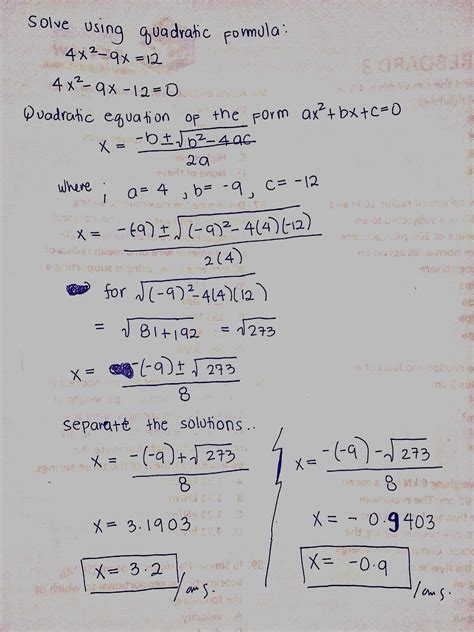 Solve using quadratic formula:
4x²-9x=12
4x²-9x-12=0
Quadratic equation of the form ax²+bx+c=0
x = -b±√b²-4ac / 2a
where ; a=4 , b=-9 , c=-12
x = -(-9)±√(-9)²-4(4)(-12) / 2(4)
for √(-9)²-4(4)(12)
= √81+192 = √273
x = -(-9)±√273 / 8
separate the solutions..
x = -(-9)+√273 / 8
x = 3.1903
x = 3.2 /ans.
x = -(-9)-√273 / 8
x = -0.9403
x = -0.9 /ans.